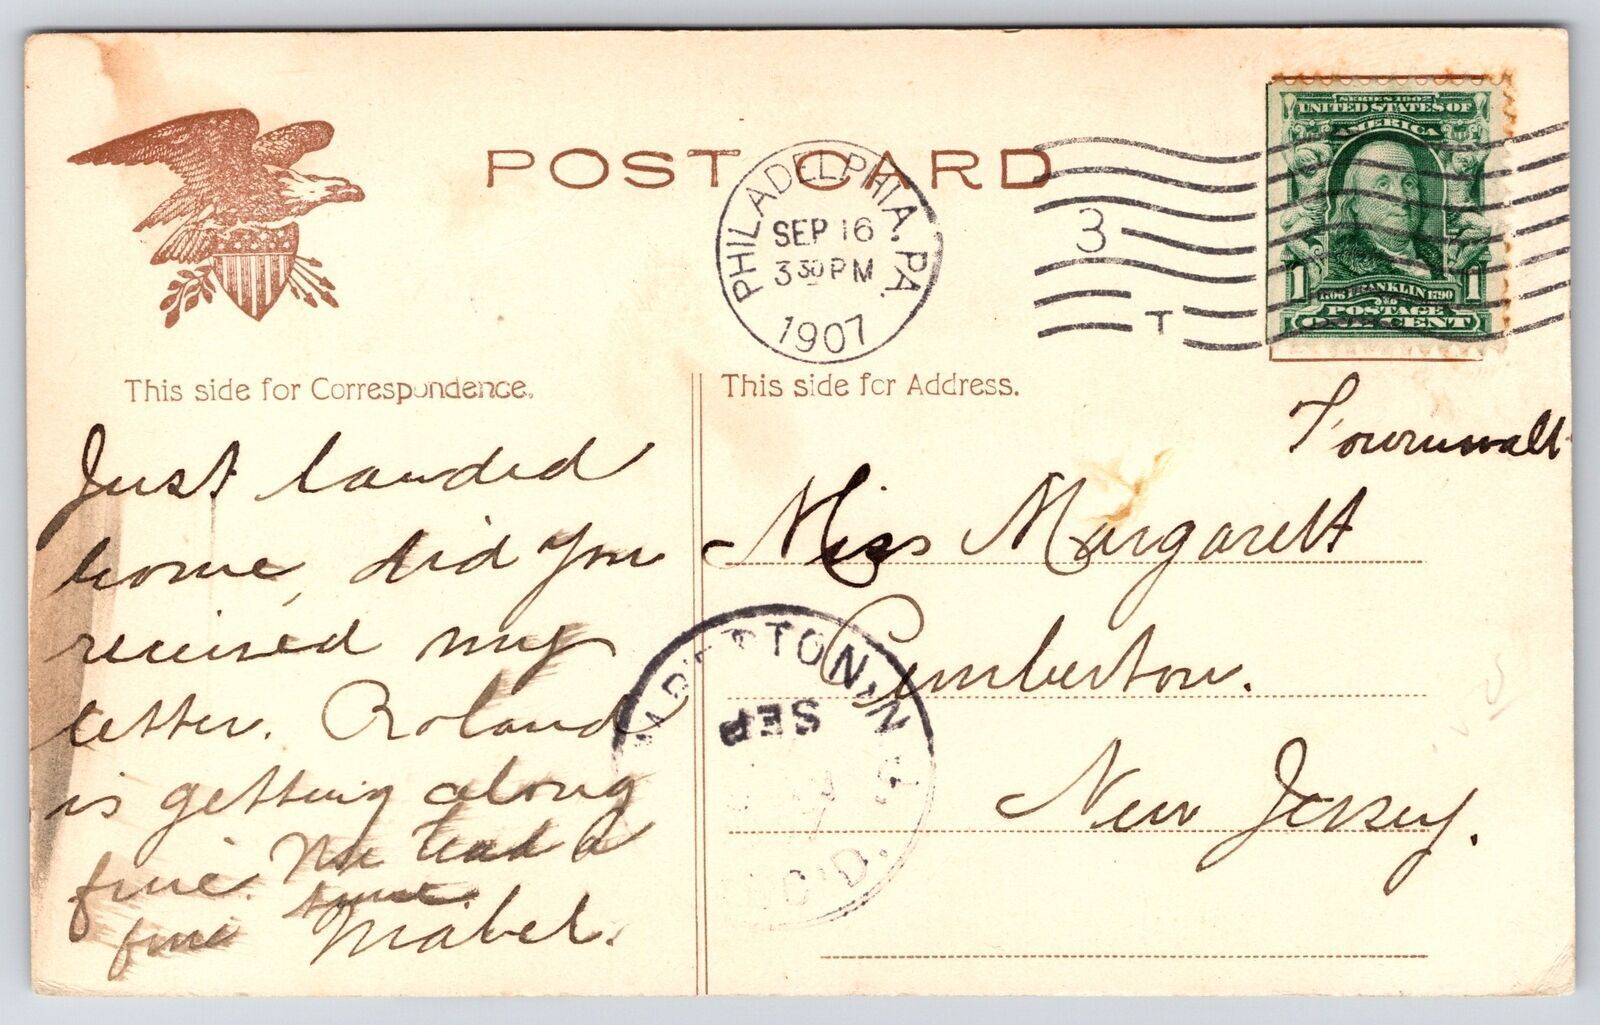 POST CARD
PHILADELPHIA, PA.
SEP 16
3 30 PM
1907
3
T
SERIES 1902
UNITED STATES OF
AMERICA
1 1
1706 FRANKLIN 1790
POSTAGE
ONE CENT
This side for Correspondence.
This side for Address.
Just landed
home, did you
received my
letter. Roland
is getting along
fine. We had a
fine time
Mabel.
Miss Margarett
Pemberton.
New Jersey.
PEMBERTON, N.J.
SEP
REC'D.